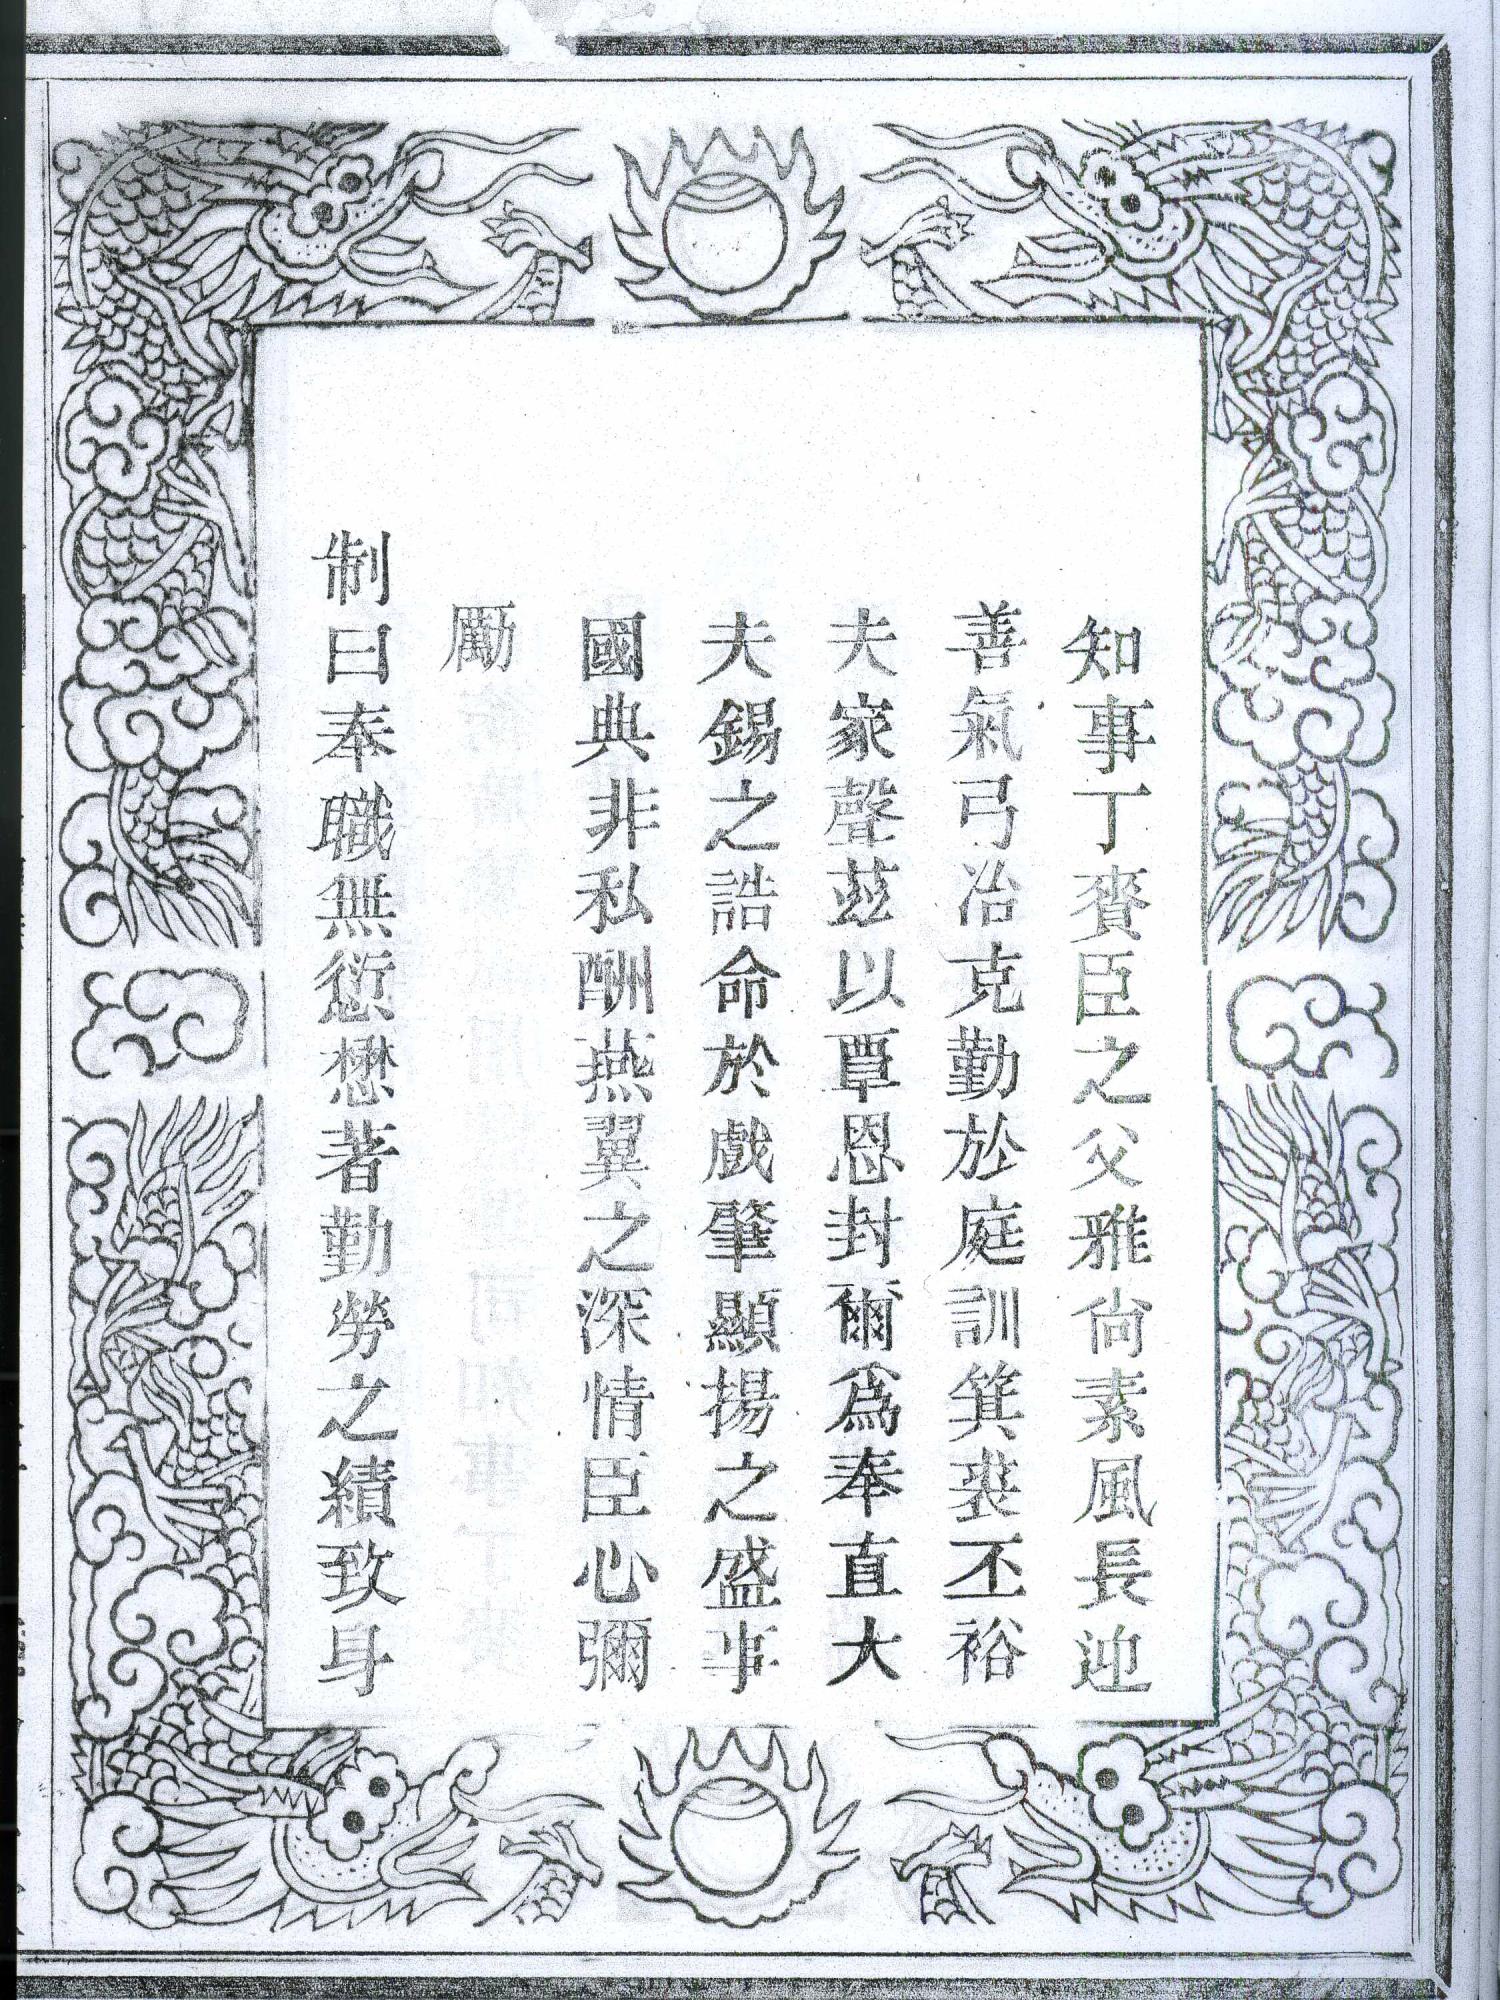 知事丁賚臣之父雅尙素風長迎
善氣弓冶克勤於庭訓箕裘丕裕
夫家聲茲以覃恩封爾爲奉直大
夫錫之誥命於戲肇顯揚之盛事
國典非私酬燕翼之深情臣心彌
勵
制曰奉職無愆懋著勤勞之績致身